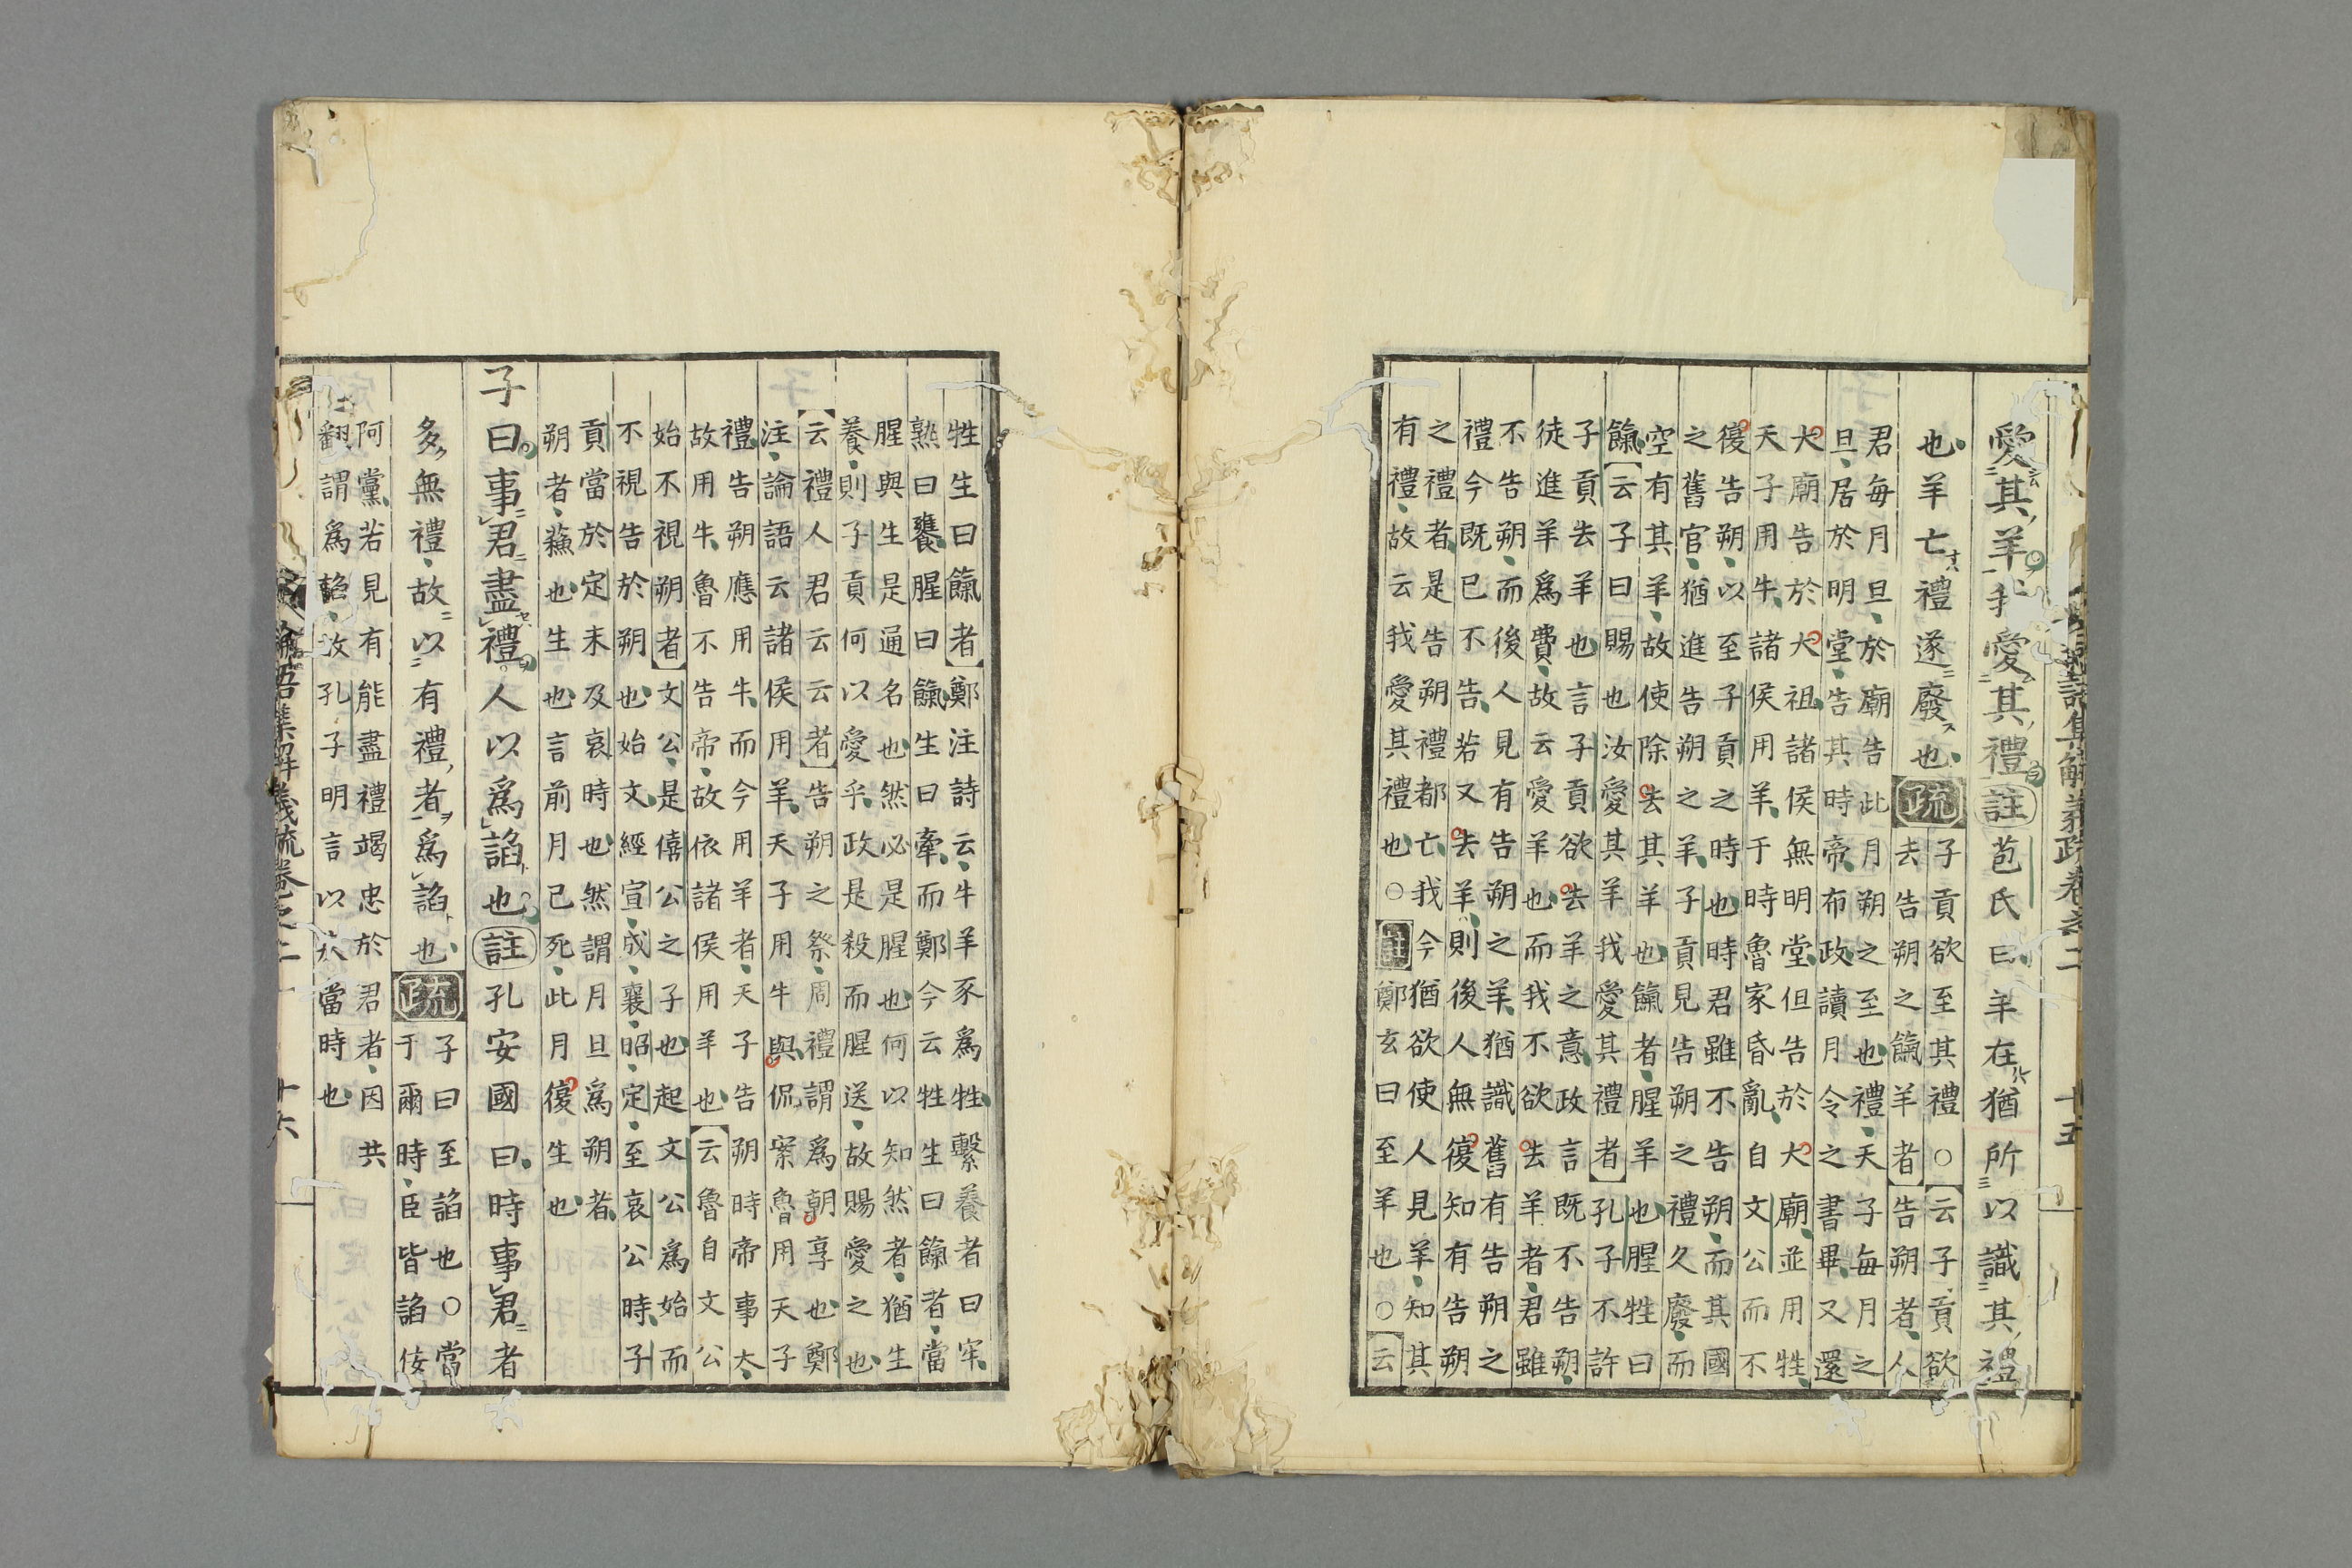 論語集解義疏卷之二 十五
愛其羊我愛其禮註苞氏曰羊在猶所以識其禮
也羊亡禮遂廢也疏
子貢欲至其禮○云子貢欲
去告朔之餼羊者告朔者人
君毎月旦於廟告此月朔之至也禮天子毎月之
旦居於明堂告其時帝布政讀月令之書畢又還
大廟告於大祖諸侯無明堂但告於大廟並用牲
天子用牛諸侯用羊于時魯家昏亂自文公而不
復告朔以至子貢之時也時君雖不告朔而其國
之舊官猶進告朔之羊子貢見告朔之禮久廢而
空有其羊故使除去其羊也餼者腥羊也腥牲曰
餼云子曰賜也汝愛其羊我愛其禮者孔子不許
子貢去羊也言子貢欲去羊之意政言既不告朔
徒進羊爲費故云愛羊也而我不欲去羊者君雖
不告朔而後人見有告朔之羊猶識舊有告朔之
禮今既已不告若又去羊則後人無復知有告朔
之禮者是告朔禮都亡我今猶欲使人見羊知其
有禮故云我愛其禮也○註鄭玄曰至羊也○云
牲生曰餼者鄭注詩云牛羊豕爲牲繫養者曰牢
熟曰饔腥曰餼生曰牽而鄭今云牲生曰餼者當
腥與生是通名也然必是腥也何以知然者猶生
養則子貢何以愛乎政是殺而腥送故賜愛之也
云禮人君云云者告朔之祭周禮謂爲朝享也鄭
注論語云諸侯用羊天子用牛與侃案魯用天子
禮告朔應用牛而今用羊者天子告朔時帝事大
故用牛魯不告帝故依諸侯用羊也云魯自文公
始不視朔者文公是僖公之子也起文公爲始而
不視告於朔也始文經宣成襄昭定至哀公時子
貢當於定末及哀時也然謂月旦爲朔者
朔者蘓也生也言前月已死此月復生也
子曰事君盡禮人以爲諂也註孔安國曰時事君者
多無禮故以有禮者爲諂也疏
子曰至諂也○當
于爾時臣皆諂佞
阿黨若見有能盡禮竭忠於君者因共
翻謂爲諂故孔子明言以於當時也
論語集解義疏卷之二 十六